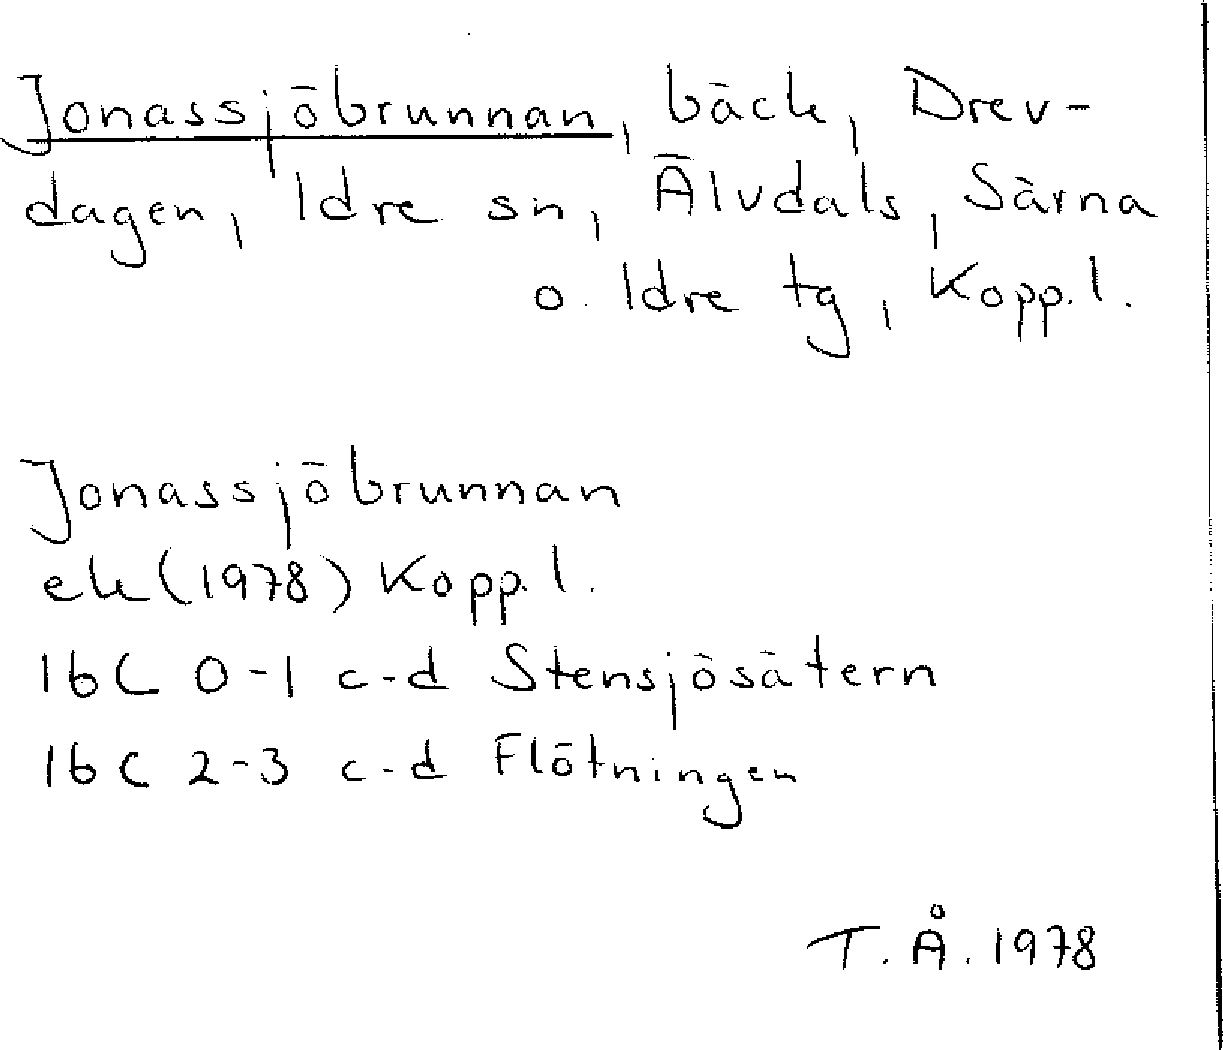 Jonassjöbrunnan, bäck, Drev-
dagen, Idre sn, Älvdals, Särna
o. Idre tg, Kopp.l.
Jonassjöbrunnan
ek (1978) Kopp.l.
16C 0-1 c-d Stensjösätern
16C 2-3 c-d Flötningen
T.Å. 1978